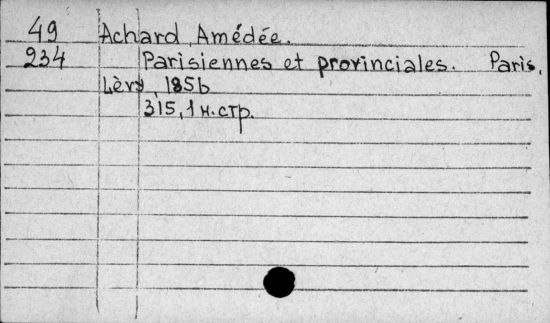 49 Achard Amédée.
234 Parisiennes et provinciales. Paris,
Lèvy, 1856
315, 1 н.стр.